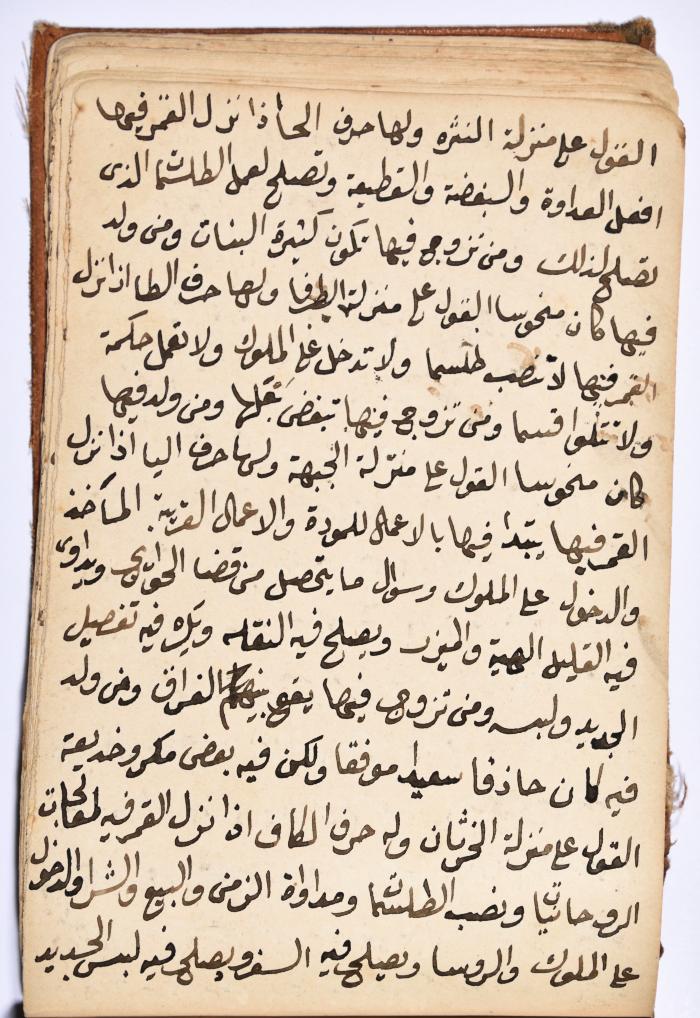 القول على منزلة النثره ولها حرف الحا اذا نزل القمر فيها
افعل العداوة والبغضة والقطيعة وتصلح لعمل الطلسمات الذى
تصلح لذلك ومن تزوج فيها تكون كثيرة البنات ومن ولد
فيها كان منحوسا القول على منزلة الطرفا ولها حرف الطا اذا نزل
القمر فيها لا تنصب طلسما ولا تدخل على الملوك ولا تعمل حكمة
ولا تتلوا قسما ومن تزوج فيها تبغض بعلها ومن ولد فيها
كان منحوسا القول على منزلة الجبهة ولها حرف اليا اذا نزل
القمر فيها يبتدا فيها بالاعمال للمودة والاعمال القريبة المآخذ
والدخول على الملوك وسوال ما يتحصل من قضا الحوايج ويداوى
فيه القليل و يصلح فيه النقله ويكره فيه تفصيل
الجديد ولبسه ومن تزوج فيها يقع بينهم الفراق ومن ولد
فيه كان حاذقا سعيدا موفقا ولكن فيه بعض مكر وخديعة
القول على منزلة الخرثان وله حرف الكاف اذا نزل القمر فيه لمعالجات
الروحانيات ونصب الطلسمات ومداواة الزمنى والبيع والشرا والدخول
على الملوك والروسا ويصلح فيه السفر ويصلح فيه لبس الجديد